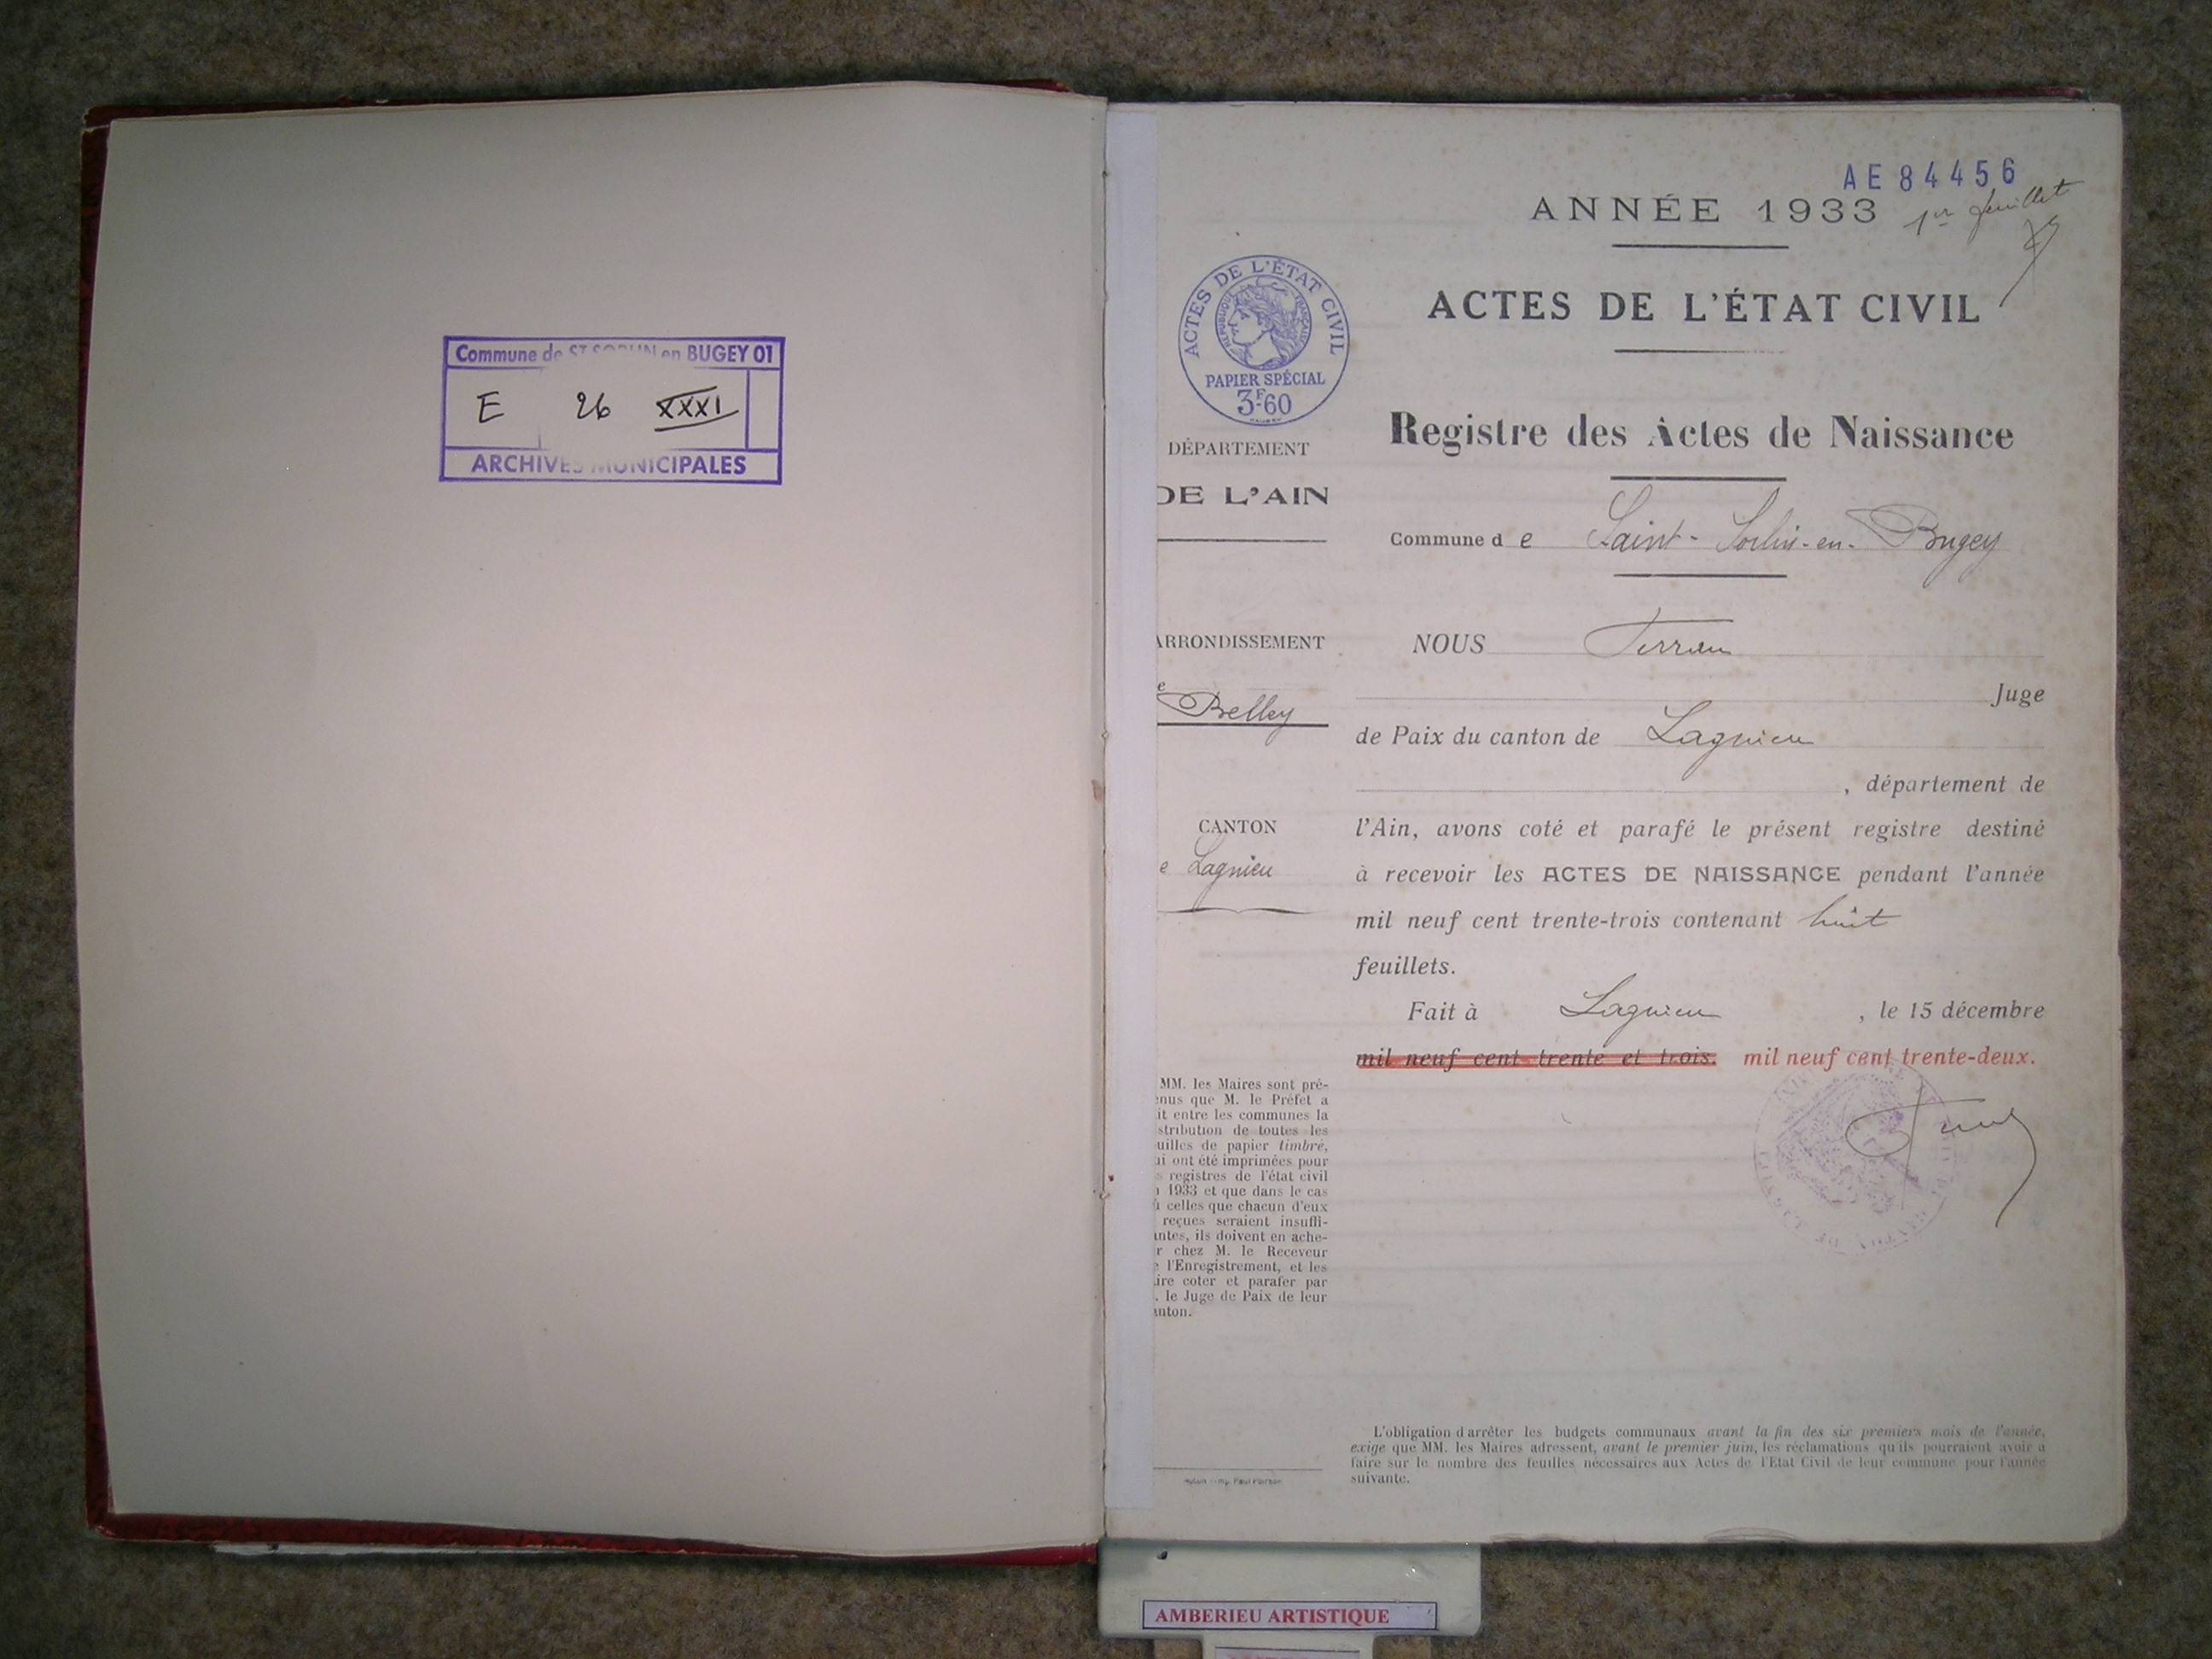 Commune de ST SORLIN en BUGEY 01
E 26 XXXI
ARCHIVES MUNICIPALES
AE 84456
ANNÉE 1933
1er feuillet
ACTES DE L'ÉTAT CIVIL
ACTES DE L'ÉTAT CIVIL
RÉPUBLIQUE FRANÇAISE
PAPIER SPÉCIAL
3F60
Registre des Actes de Naissance
DÉPARTEMENT
DE L'AIN
Commune de Saint-Sorlin-en-Bugey
ARRONDISSEMENT
e
Belley
NOUS
Juge
de Paix du canton de Lagnieu
, département de
CANTON
e Lagnieu
l'Ain, avons coté et parafé le présent registre destiné
à recevoir les ACTES DE NAISSANCE pendant l'année
mil neuf cent trente-trois contenant huit
feuillets.
Fait à Lagnieu, le 15 décembre
mil neuf cent trente et trois. mil neuf cent trente-deux.
MM. les Maires sont pré-
enus que M. le Préfet a
it entre les communes la
stribution de toutes les
uilles de papier timbré,
ui ont été imprimées pour
s registres de l'état civil
n 1933 et que dans le cas
ù celles que chacun d'eux
reçues seraient insuffi-
antes, ils doivent en ache-
r chez M. le Receveur
e l'Enregistrement, et les
aire coter et parafer par
. le Juge de Paix de leur
anton.
L'obligation d'arrêter les budgets communaux avant la fin des six premiers mois de l'année,
exige que MM. les Maires adressent, avant le premier juin, les réclamations qu'ils pourraient avoir à
faire sur le nombre des feuilles nécessaires aux Actes de l'Etat Civil de leur commune pour l'année
suivante.
AMBERIEU ARTISTIQUE